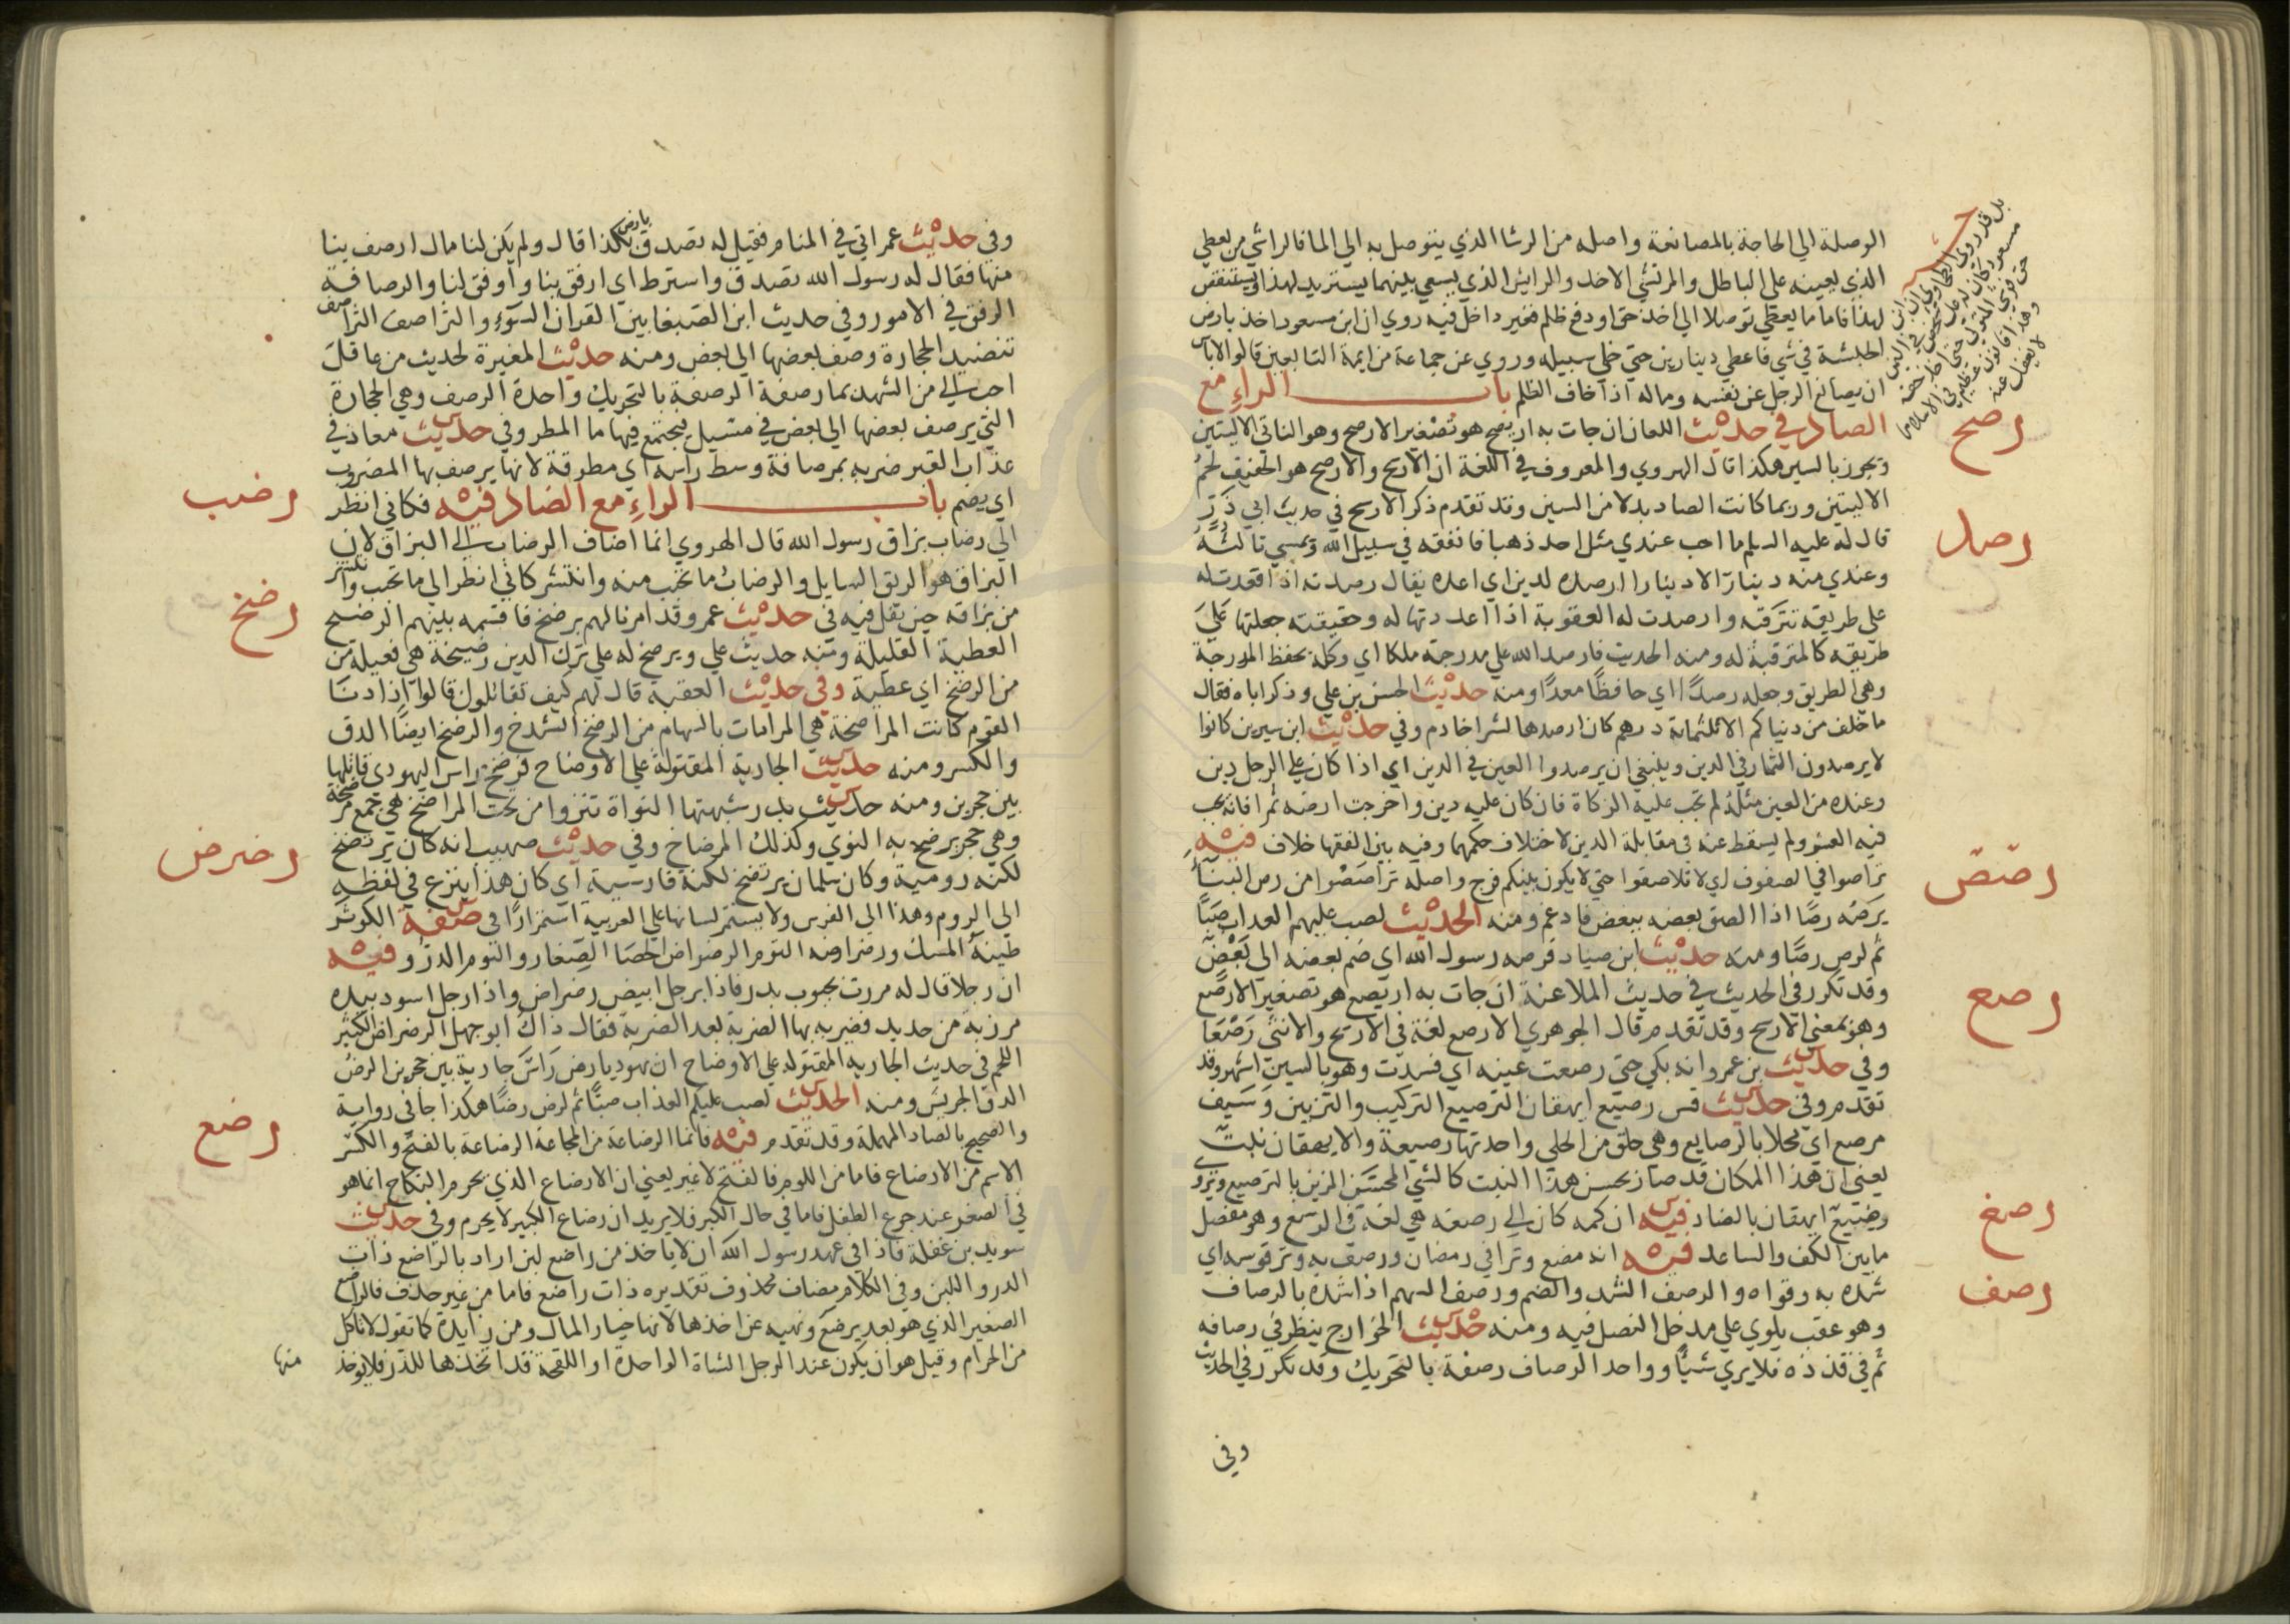 الوصلة الي الحاجة بالمصانعة واصله من الرشا الذي يتوصل به الي الما فالراشي من يعطي
الذي يعينه علي الباطل والمرتشي الاخد والرايش الذي يسعي بينهما يستزيد لهذا ويستنقص
لهذا فاما ما يعطي توصلا الي أخذ حق او دفع ظلم فغير داخل فيه روي ان ابن مسعود اخذ بارض
الحبشة في شي فاعطي دينارين حتي خلي سبيله وروي عن جماعة من ايمة التابعين قالوا لا باس
ان يصانع الرجل عن نفسه وماله اذا خاف الظلم باب الراء مع
الصاد في حديث اللعان ان جات به اريصح هو تصغير الارصح وهو الناتي الاليتين
ويجوز بالسين هكذا قال الهروي والمعروف في اللغة ان الارسح والارصح هو الخفيف لحم
الاليتين وربما كانت الصاد بدلا من السين وقد تقدم ذكر الارسح في حديث ابي ذر
قال له عليه السلم ما احب عندي مثل احد ذهبا فانفقه في سبيل الله وتمسي ثالثه
وعندي منه دينار الا دينارا ارصده لدين اي اعده يقال رصدته اذا قعدت له
علي طريقه تترقبه وارصدت له العقوبة اذا اعددتها له وحقيقته جعلتها علي
طريقه كالمترقبة له ومنه الحديث فارصد الله علي مدرجته ملكا اي وكله بحفظ المدرجة
وهي الطريق وجعله رصدا اي حافظا معدا ومنه حديث الحسن بن علي وذكر اباه فقال
ما خلف من دنياكم الا ثلثماية درهم كان ارصدها لشرا خادم وفي حديث ابن سيرين كانوا
لا يرصدون الثمار في الدين وينبغي ان يرصدوا العين في الدين اي اذا كان علي الرجل دين
وعنده من العين مثله لم تجب عليه الزكاة فان كان عليه دين واخرجت ارضه ثمرا فانه يجب
فيه العشر ولم يسقط عنه في مقابلة الدين لاختلاف حكمهما وفيه بين الفقها خلاف فيه
تراصوا في الصفوف اي لا تلاصقوا حتي لا يكون بينكم فرج واصله تراصصوا من رص البنا
يرصه رصا اذا الصق بعضه ببعض فادغم ومنه الحديث لصب عليهم العداب صبا
ثم لرص رصا ومنه حديث ابن صياد فرصه رسول الله اي ضم بعضه الي بعض
وقد تكرر في الحديث في حديث الملاعنة ان جات به اريصع هو تصغير الارصع
وهو بمعني الارسح وقد تقدم قال الجوهري الارصع لغة في الارسح والانثي رصعا
وفي حديث بن عمرو انه بكي حتي رصعت عينه اي فسدت وهو بالسين اشهر وقد
تقدم وفي حديث قس رصيع ايهقان الترصيع التركيب والتزيين وسيف
مرصع اي محلا بالرصايع وهي حلق من الحلي واحدتها رصيعة والايهقان نبت
يعني ان هذا المكان قد صار بحسن هذا النبت كالشي المحسن المزين بالترصيع ويروي
رضيع ايهقان بالضاد فيه ان كمه كان الي رصغه هي لغة في الرسغ وهو مفصل
ما بين الكف والساعد فيه انه مضغ وترا في رمضان ورصف به وتر قوسه اي
شده به وقواه والرصف الشد والضم ورصف السهم اذا شده بالرصاف
وهو عقب يلوي علي مدخل النصل فيه ومنه حديث الخوارج ينظر في رصافه
ثم في قذذه فلا يري شيا وواحد الرصاف رصفة بالتحريك وقد تكرر في الحديث
وفي
رصح
رصد
رصص
رصع
رصغ
رصف
وفي حديث عمر اتي في المنام فقيل له تصدق بارض كذا قال ولم يكن لنا مال ارصف بنا
منها فقال له رسول الله تصدق واسترط اي ارفق بنا واوفق لنا والرصافة
الرفق في الامور وفي حديث ابن الصبغا بين القران السوء والتراصف التراصف
تنضيد الحجارة وصف بعضها الي بعض ومنه حديث المغيرة لحديث من عاقل
احب الي من الشهد بما رصفة الرصفة بالتحريك واحدة الرصف وهي الحجارة
التي يرصف بعضها الي بعض في مسيل فيجتمع فيها ما المطر وفي حديث معاذ في
عذاب القبر ضربه بمرصافة وسط راسه اي مطرقة لانها يرصف بها المضروب
اي يضم باب الراء مع الضاد فيه فكاني انظر
الي رضاب بزاق رسول الله قال الهروي انما اضاف الرضاب الي البزاق لان
البزاق هو الريق السايل والرضاب ما تحبب منه وانتشر كاني انظر الي ما تحبب وانتشر
من بزاقه حين تفل فيه في حديث عمر وقد امرنا لهم برضخ فاقسمه بينهم الرضخ
العطية القليلة ومنه حديث علي ويرضخ له علي ترك الدين رضيخة هي فعيلة من
من الرضخ اي عطية وفي حديث العقبة قال لهم كيف تقاتلون قالوا اذا دنا
القوم كانت المراضخة هي المرامات بالسهام من الرضخ الشدخ والرضخ ايضا الدق
والكسر ومنه حديث الجارية المقتولة علي الاوضاح فرضخ راس اليهودي قاتلها
بين حجرين ومنه حديث بدر شبهتها النواة تنزوا من تحت المراضخ هي جمع مرضخة
وهي حجر يرضخ به النوي وكذلك المرضاخ وفي حديث صهيب انه كان يرتضخ
لكنة رومية وكان سلمان يرتضخ لكنة فارسية اي كان هذا ينزع في لفظه
الي الروم وهذا الي الفرس ولا يستمر لسانها علي العربية استمرارا في صفة الكوثر
طينة المسك ورضراضه التوم الرضراض الحصا الصغار والتوم الدر وفيه
ان رجلا قال له مررت بجبوب بدر فاذا برجل ابيض رضراض واذا رجل اسود بيده
مرزبة من حديد فضربه بها الضربة بعد الضربة فقال ذاك ابو جهل الرضراض الكثير
اللحم في حديث الجاريه المقتوله علي الاوضاح ان يهوديا رض راس جارية بين حجرين الرض
الدق الجريش ومنه الحديث لصب عليكم العذاب صبا ثم لرض رضا هكذا جا في رواية
والصحيح بالصاد المهملة وقد تقدم فيه فانما الرضاعة من المجاعة الرضاعة بالفتح والكسر
الاسم من الارضاع فاما من اللوم فالفتح لا غير يعني ان الارضاع الذي يحرم النكاح انما هو
في الصغر عند جوع الطفل فاما في حال الكبر فلا يريد ان رضاع الكبير لا يحرم وفي حديث
سويد بن غفلة فاذا في عهد رسول الله ان لا ياخذ من راضع لبن اراد بالراضع ذات
الدر واللبن وفي الكلام مضاف محذوف تقديره ذات راضع فاما من غير حذف فالراضع
الصغير الذي هو بعد يرضع ونهيه عن اخذها لانها خيار المال ومن زايدة كما تقول لا تاكل
من الحرام وقيل هو ان يكون عند الرجل الشاة الواحدة او اللقحة قد اتخذها للدر فلا يوخذ
منها
رضب
رضخ
رضرض
رضع